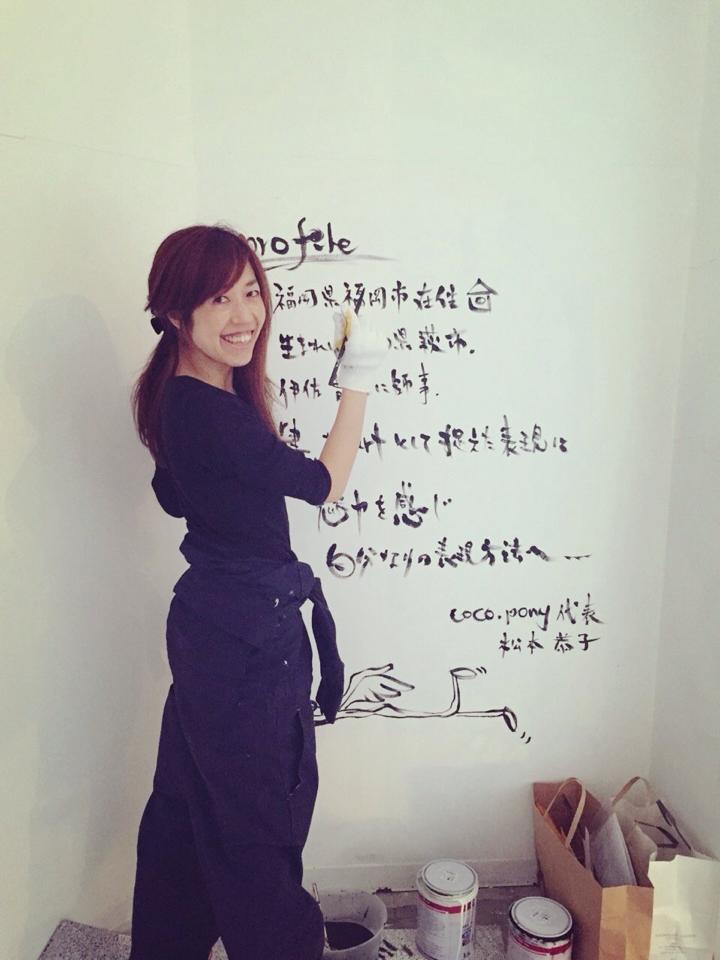 profile
福岡県福岡市在住
生まれ 県萩市.
伊佐 に師事.
として捉えた表現に
魅力を感じ
自分なりの表現方法へ…
coco.pony 代表
松本 恭子